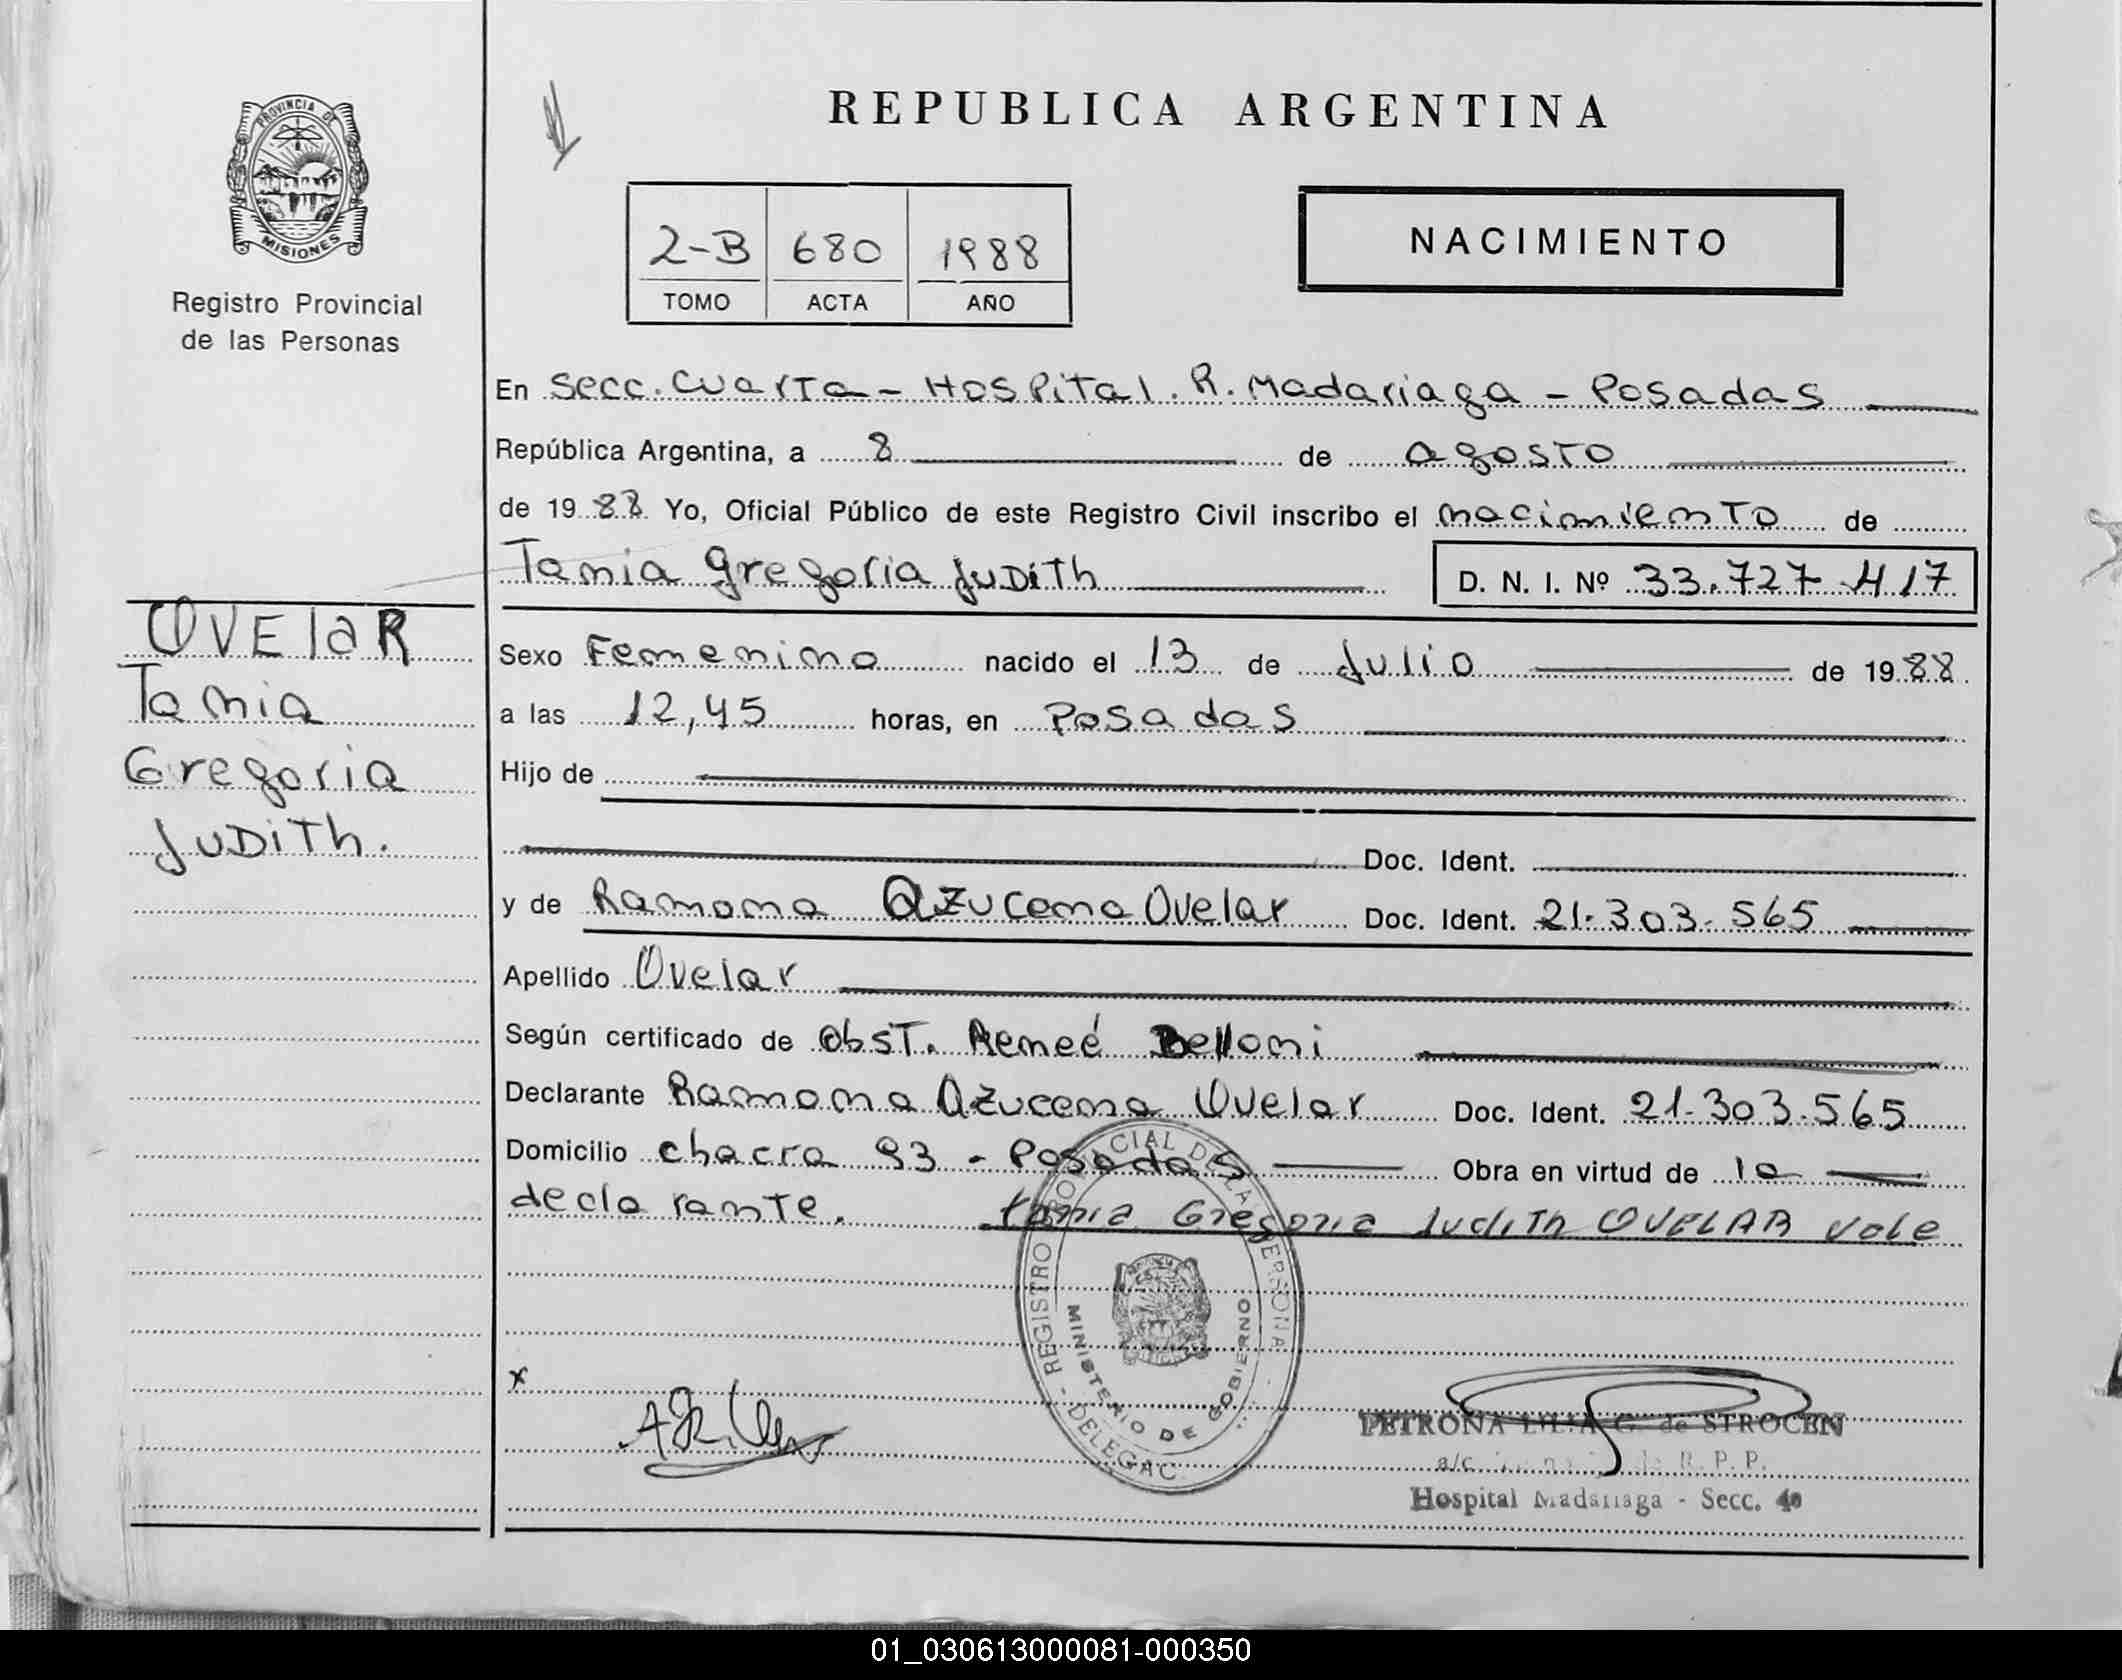 REPUBLICA ARGENTINA
PROVINCIA DE
MISIONES
Registro Provincial
de las Personas
2-B 680 1988
TOMO ACTA AÑO
NACIMIENTO
En Secc. Cuarta - Hospital. R. Madariaga - Posadas
República Argentina, a 8 de agosto
de 19 88 Yo, Oficial Público de este Registro Civil inscribo el nacimiento de
Tania Gregoria Judith D. N. I. Nº 33.727.417
OVElaR
Tania
Gregoria
Judith.
Sexo Femenino nacido el 13 de Julio de 19 88
a las 12,45 horas, en Posadas
Hijo de
Doc. Ident.
y de Ramona Azucena Ovelar Doc. Ident. 21.303.565
Apellido Ovelar
Según certificado de Obst. Reneé Belloni
Declarante Ramona Azucena Ovelar Doc. Ident. 21.303.565
Domicilio chacra 93 - Posadas Obra en virtud de la
declarante. Tania Gregoria Judith OVELAR Vale
REGISTRO PROVINCIAL DE LAS PERSONA
MINISTERIO DE GOBIERNO
DELEGAC
x
PETRONA G. de STROCEN
a/c R. P. P.
Hospital Madariaga - Secc. 4a
01_030613000081-000350